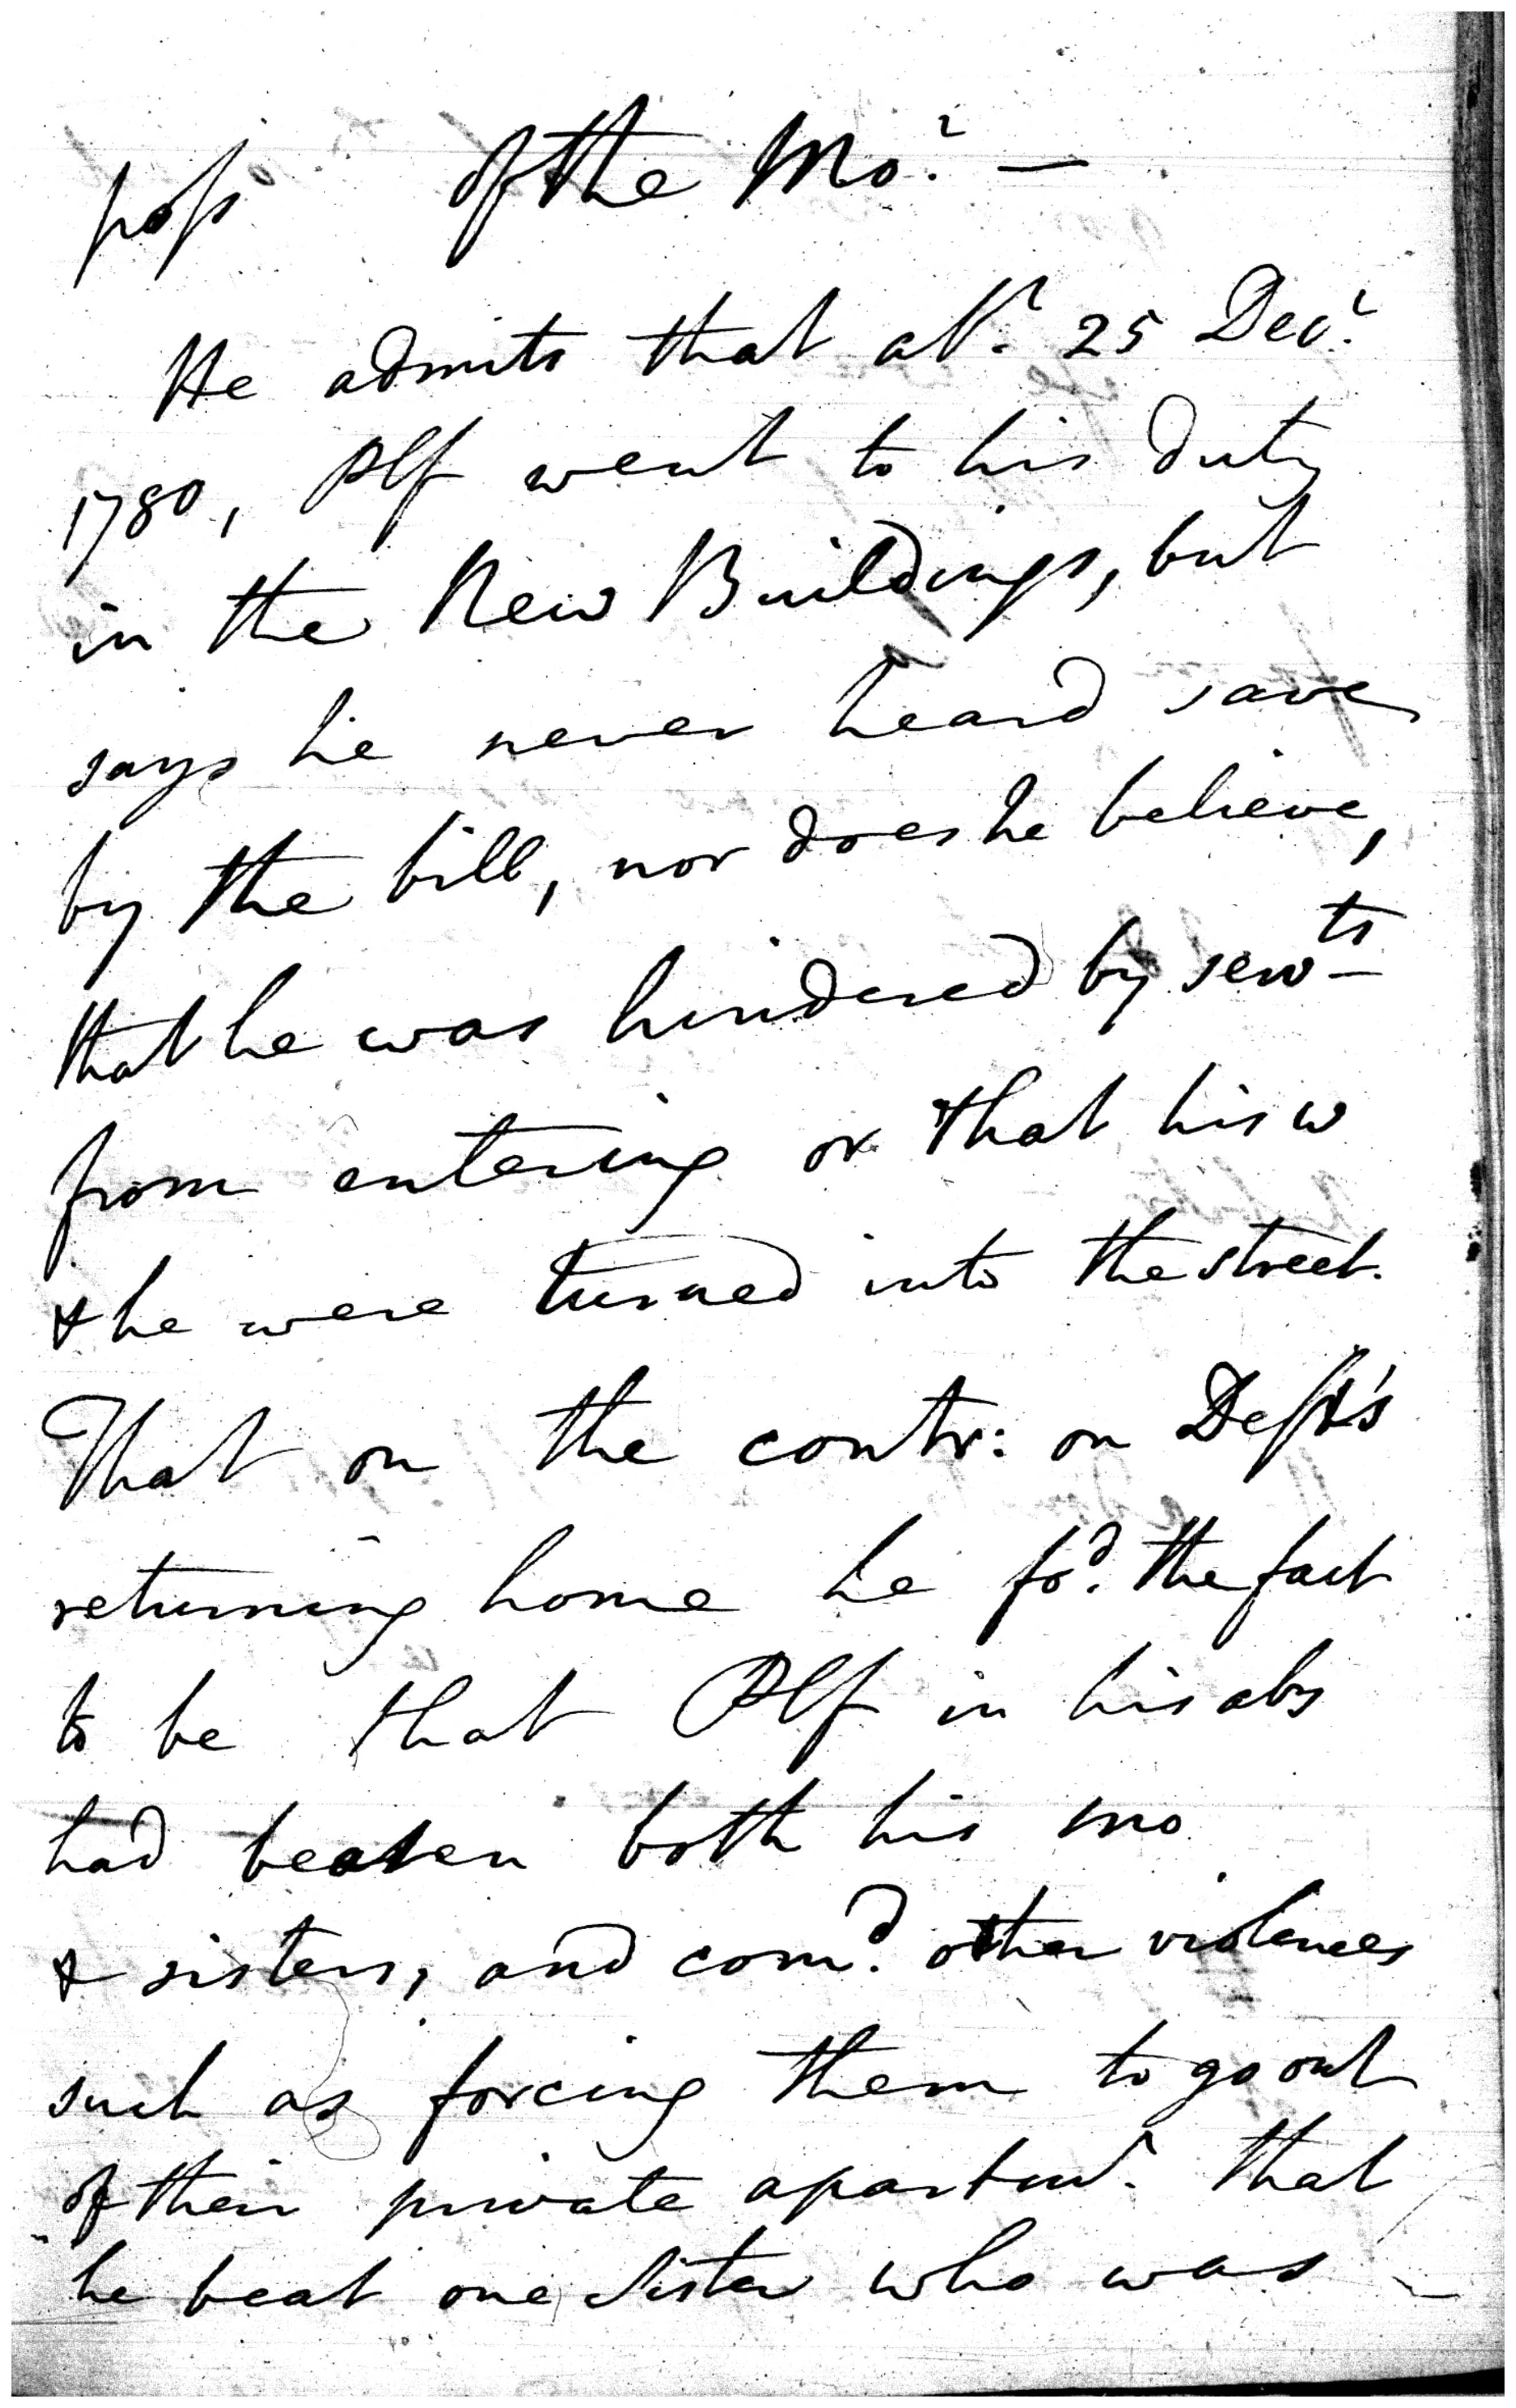 poss of the Mo.r —
He admits that abt. 25 Decr.
1780, Plf went to his duty
in the New Buildings, but
says he never heard save
by the bill, nor does he believe,
that he was hindered by servts
from entering or that his w
& he were turned into the street.
That on the contr: on Deft's
returning home he fod. the fact
to be that Plf in his abs
had beaten both his mo
& sisters, and comd. other violences
such as forcing them to go out
of their private apartmt. That
he beat one Sister who was